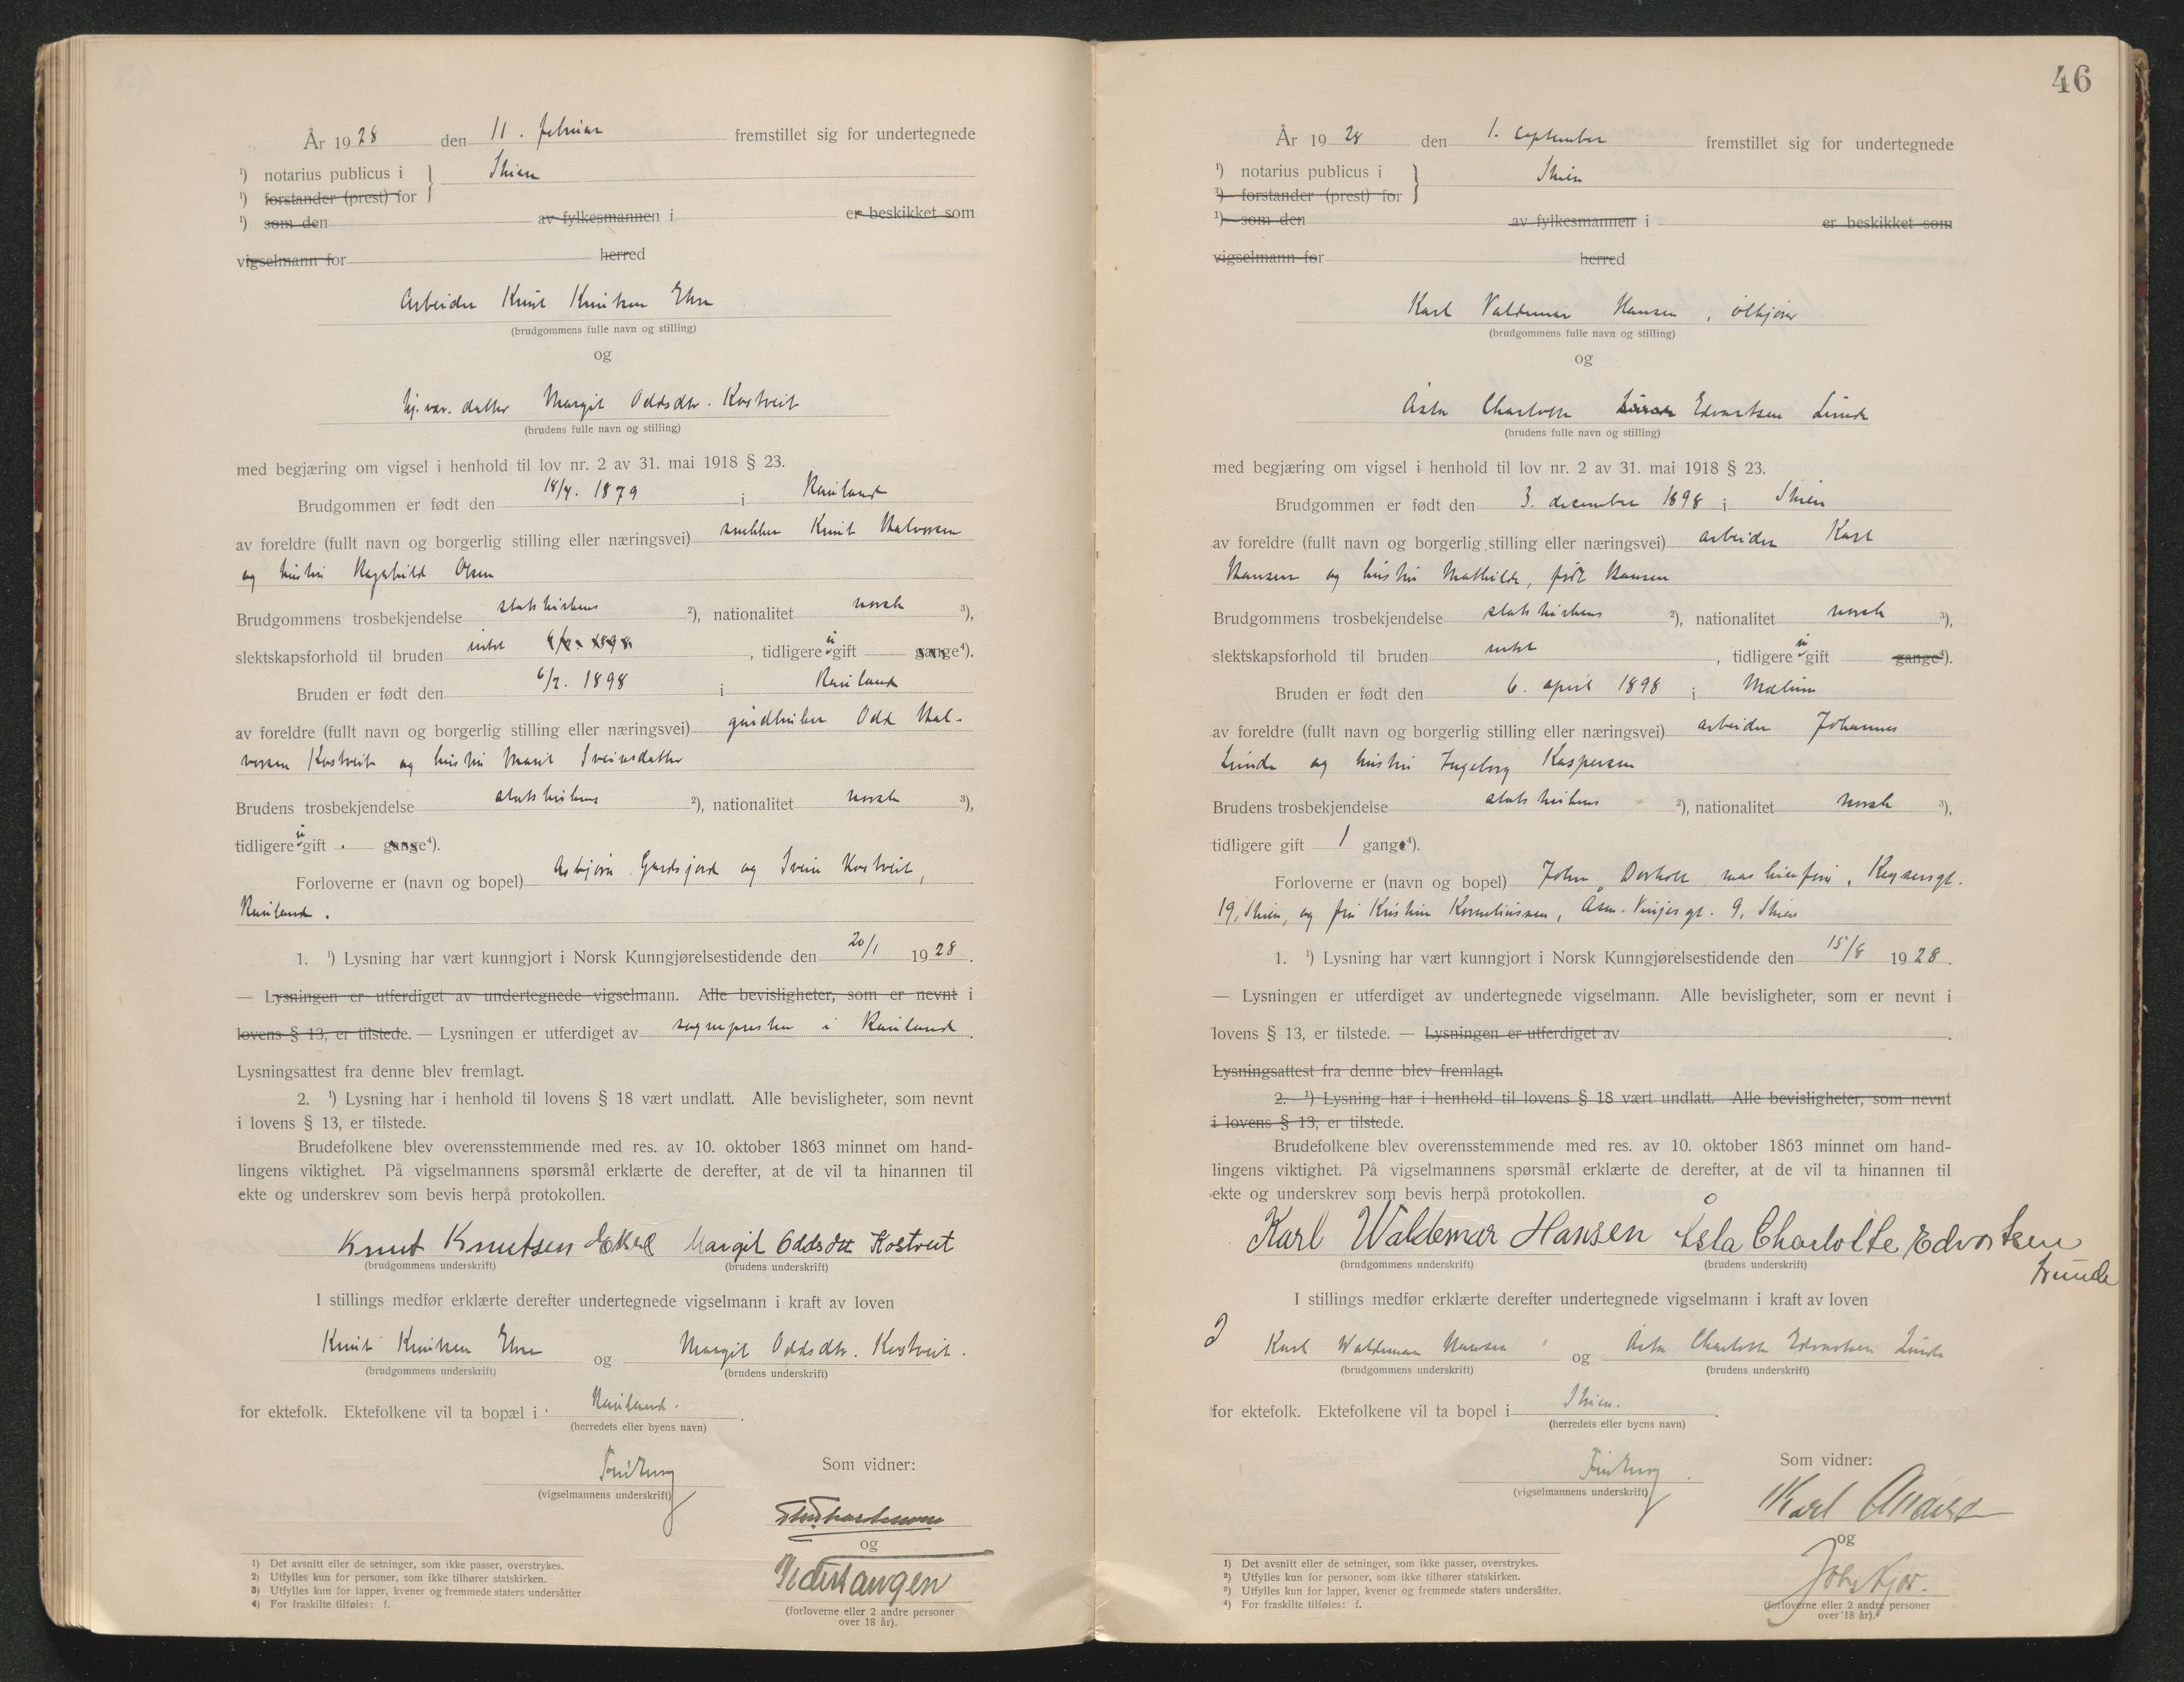 År 1928 den 11. februar fremstillet sig for undertegnede
¹) notarius publicus i } Skien
¹) forstander (prest) for
¹) som den av fylkesmannen i er beskikket som
vigselmann for herred
Arbeider Knut Knutsen
(brudgommens fulle navn og stilling)
og
hj.vær. datter Margit Oddsdtr. Kostveit
(brudens fulle navn og stilling)
med begjæring om vigsel i henhold til lov nr. 2 av 31. mai 1918 § 23.
Brudgommen er født den 1879 i Rauland
av foreldre (fullt navn og borgerlig stilling eller næringsvei) snekker Knut Halvorsen
og hustru Ragnhild Olsen
Brudgommens trosbekjendelse statskirkens ²), nationalitet norsk ³),
slektskapsforhold til bruden intet , tidligere ei gift gange⁴).
Bruden er født den 6/2. 1898 i Rauland
av foreldre (fullt navn og borgerlig stilling eller næringsvei) gårdbruker Odd Hal-
vorsen Kostveit og hustru Marit Sveinsdatter
Brudens trosbekjendelse statskirkens ²), nationalitet norsk ³),
tidligere ei gift gange⁴).
Forloverne er (navn og bopel) Asbjørn Gardsjord og Svein Kostveit,
Rauland.
1. ¹) Lysning har vært kunngjort i Norsk Kunngjørelsestidende den 20/1 1928.
— Lysningen er utferdiget av undertegnede vigselmann. Alle bevisligheter, som er nevnt i
lovens § 13, er tilstede. — Lysningen er utferdiget av sognepresten i Rauland.
Lysningsattest fra denne blev fremlagt.
2. ¹) Lysning har i henhold til lovens § 18 vært undlatt. Alle bevisligheter, som nevnt
i lovens § 13, er tilstede.
Brudefolkene blev overensstemmende med res. av 10. oktober 1863 minnet om hand-
lingens viktighet. På vigselmannens spørsmål erklærte de derefter, at de vil ta hinannen til
ekte og underskrev som bevis herpå protokollen.
Knut Knutsen Margit Oddsdtt Kostveit
(brudgommens underskrift) (brudens underskrift)
I stillings medfør erklærte derefter undertegnede vigselmann i kraft av loven
Knut Knutsen og Margit Oddsdtr. Kostveit.
(brudgommens underskrift) (brudens underskrift)
for ektefolk. Ektefolkene vil ta bopæl i Rauland.
(herredets eller byens navn)
Som vidner:
(vigselmannens underskrift)
og
(forloverne eller 2 andre personer
over 18 år).
1) Det avsnitt eller de setninger, som ikke passer, overstrykes.
2) Utfylles kun for personer, som ikke tilhører statskirken.
3) Utfylles kun for lapper, kvener og fremmede staters undersåtter
4) For fraskilte tilføies: f.
46
År 1928 den 1. september fremstillet sig for undertegnede
¹) notarius publicus i } Skien
¹) forstander (prest) for
¹) som den av fylkesmannen i er beskikket som
vigselmann for herred
Karl Valdemar Hansen, ølkjører
(brudgommens fulle navn og stilling)
og
Åsta Charlotte Edvartsen Lunde
(brudens fulle navn og stilling)
med begjæring om vigsel i henhold til lov nr. 2 av 31. mai 1918 § 23.
Brudgommen er født den 3. december 1898 i Skien
av foreldre (fullt navn og borgerlig stilling eller næringsvei) arbeider Karl
Hansen og hustru Mathilde, født Hansen
Brudgommens trosbekjendelse statskirkens ²), nationalitet norsk ³),
slektskapsforhold til bruden intet , tidligere ei gift gange⁴).
Bruden er født den 6. april 1898 i Mælum
av foreldre (fullt navn og borgerlig stilling eller næringsvei) arbeider Johannes
Lunde og hustru Ingeborg Kaspersen
Brudens trosbekjendelse statskirkens ²), nationalitet norsk ³),
tidligere gift 1 gang⁴).
Forloverne er (navn og bopel) John Dorholt, Keysersgt.
19, Skien, og fru Kristine Korneliussen, Aasm. Vinjes gt. 9, Skien
1. ¹) Lysning har vært kunngjort i Norsk Kunngjørelsestidende den 15/8 1928.
— Lysningen er utferdiget av undertegnede vigselmann. Alle bevisligheter, som er nevnt i
lovens § 13, er tilstede. — Lysningen er utferdiget av
Lysningsattest fra denne blev fremlagt.
2. ¹) Lysning har i henhold til lovens § 18 vært undlatt. Alle bevisligheter, som nevnt
i lovens § 13, er tilstede.
Brudefolkene blev overensstemmende med res. av 10. oktober 1863 minnet om hand-
lingens viktighet. På vigselmannens spørsmål erklærte de derefter, at de vil ta hinannen til
ekte og underskrev som bevis herpå protokollen.
Karl Waldemar Hansen Åsta Charlotte Edvartsen
Lunde
(brudgommens underskrift) (brudens underskrift)
I stillings medfør erklærte derefter undertegnede vigselmann i kraft av loven
Karl Waldemar Hansen og Åsta Charlotte Edvartsen Lunde
(brudgommens underskrift) (brudens underskrift)
for ektefolk. Ektefolkene vil ta bopel i Skien.
(herredets eller byens navn)
Som vidner:
(vigselmannens underskrift)
Karl
og
(forloverne eller 2 andre personer
over 18 år).
1) Det avsnitt eller de setninger, som ikke passer, overstrykes.
2) Utfylles kun for personer, som ikke tilhører statskirken.
3) Utfylles kun for lapper, kvener og fremmede staters undersåtter.
4) For fraskilte tilføies: f.